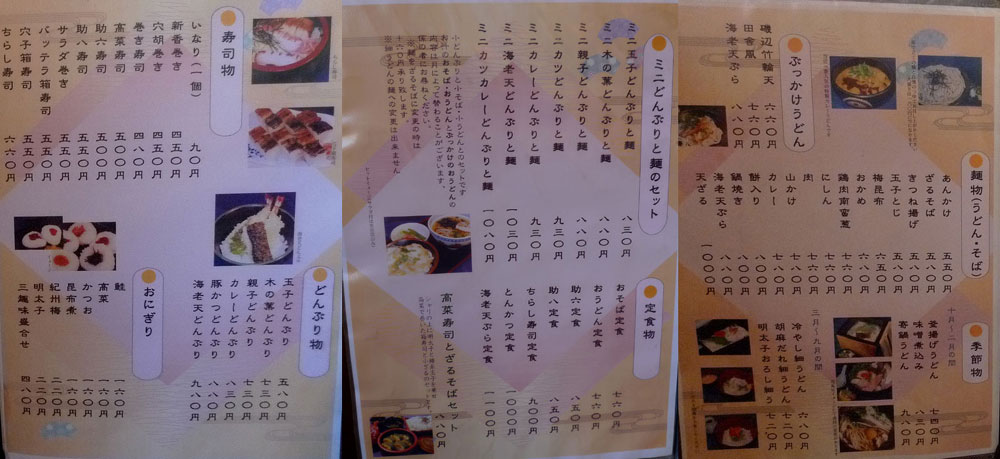 麺物(うどん・そば)
あんかけ 五五〇円
ざるそば 五五〇円
きつね揚げ
玉子とじ
梅昆布 六五〇円
おかめ
鶏肉南蛮葱
にしん
鍋焼き
餅入り
カレー
山かけ
肉
海老天ぷら
天ざる 一〇〇〇円
季節物
十月〜二月の間
釜揚げうどん 七四〇円
味噌煮込み 八三〇円
寄鍋うどん 九八〇円
三月〜九月の間
冷やし細うどん 六八〇円
胡麻だれ細うどん 七二〇円
明太子おろし細う 七二〇円
ぶっかけうどん
磯辺竹輪天 六八〇円
田舎風 七六〇円
海老天ぷら 八八〇円
ミニどんぶりと麺のセット
ミニ玉子どんぶりと麺 八三〇円
ミニ木の葉どんぶりと麺 八八〇円
ミニ親子どんぶりと麺 八八〇円
ミニカツどんぶりと麺 九三〇円
ミニカレーどんぶりと麺 九三〇円
ミニ海老天どんぶりと麺 一〇三〇円
ミニカツカレーどんぶりと麺 一〇八〇円
小どんぶりと小そば・小うどんとのセットです
お外のおそば・おうどんとぶっかけのおうどんの
内容は月によって替わることがございます。
係の者にお尋ねください。
※麺をざるそばに変更の時は
十六〇円承り致します。
※細うどんの麺への変更は出来ません
定食物
おそば定食 七六〇円
おうどん定食 七六〇円
助六定食 八五〇円
助八定食 八五〇円
ちらし寿司定食 一〇〇〇円
とんかつ定食 一〇〇〇円
海老天ぷら定食 一一〇〇円
高菜寿司とざるそばセット 八八〇円
寿司物
いなり(一個) 九〇円
新香巻き 四五〇円
穴胡巻き 五五〇円
巻き寿司 四八〇円
高菜寿司 五〇〇円
助六寿司 五五〇円
助八寿司 五五〇円
サラダ巻き 五五〇円
バッテラ箱寿司 五五〇円
穴子箱寿司 六六〇円
ちらし寿司 六六〇円
どんぶり物
玉子どんぶり 五八〇円
木の葉どんぶり 六三〇円
親子どんぶり 七三〇円
カレーどんぶり 八三〇円
豚かつどんぶり 八八〇円
海老天どんぶり 九八〇円
おにぎり
鮭 一六〇円
高菜 一六〇円
かつお 一六〇円
昆布煮 一六〇円
紀州梅 二二〇円
明太子 二二〇円
三趣味盛合せ 四八〇円